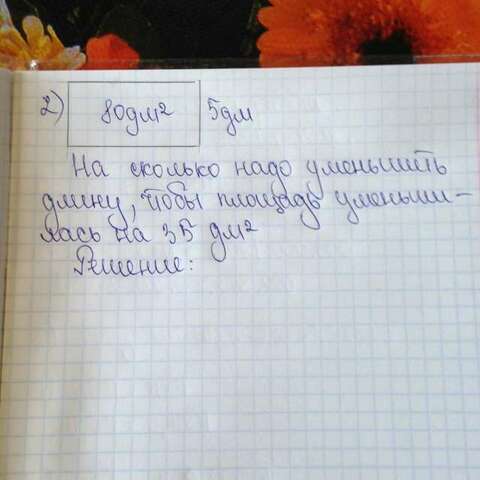 2) 80дм² 5дм
На сколько надо уменьшить
длину, чтобы площадь уменьши-
лась на 35 дм²
Решение: